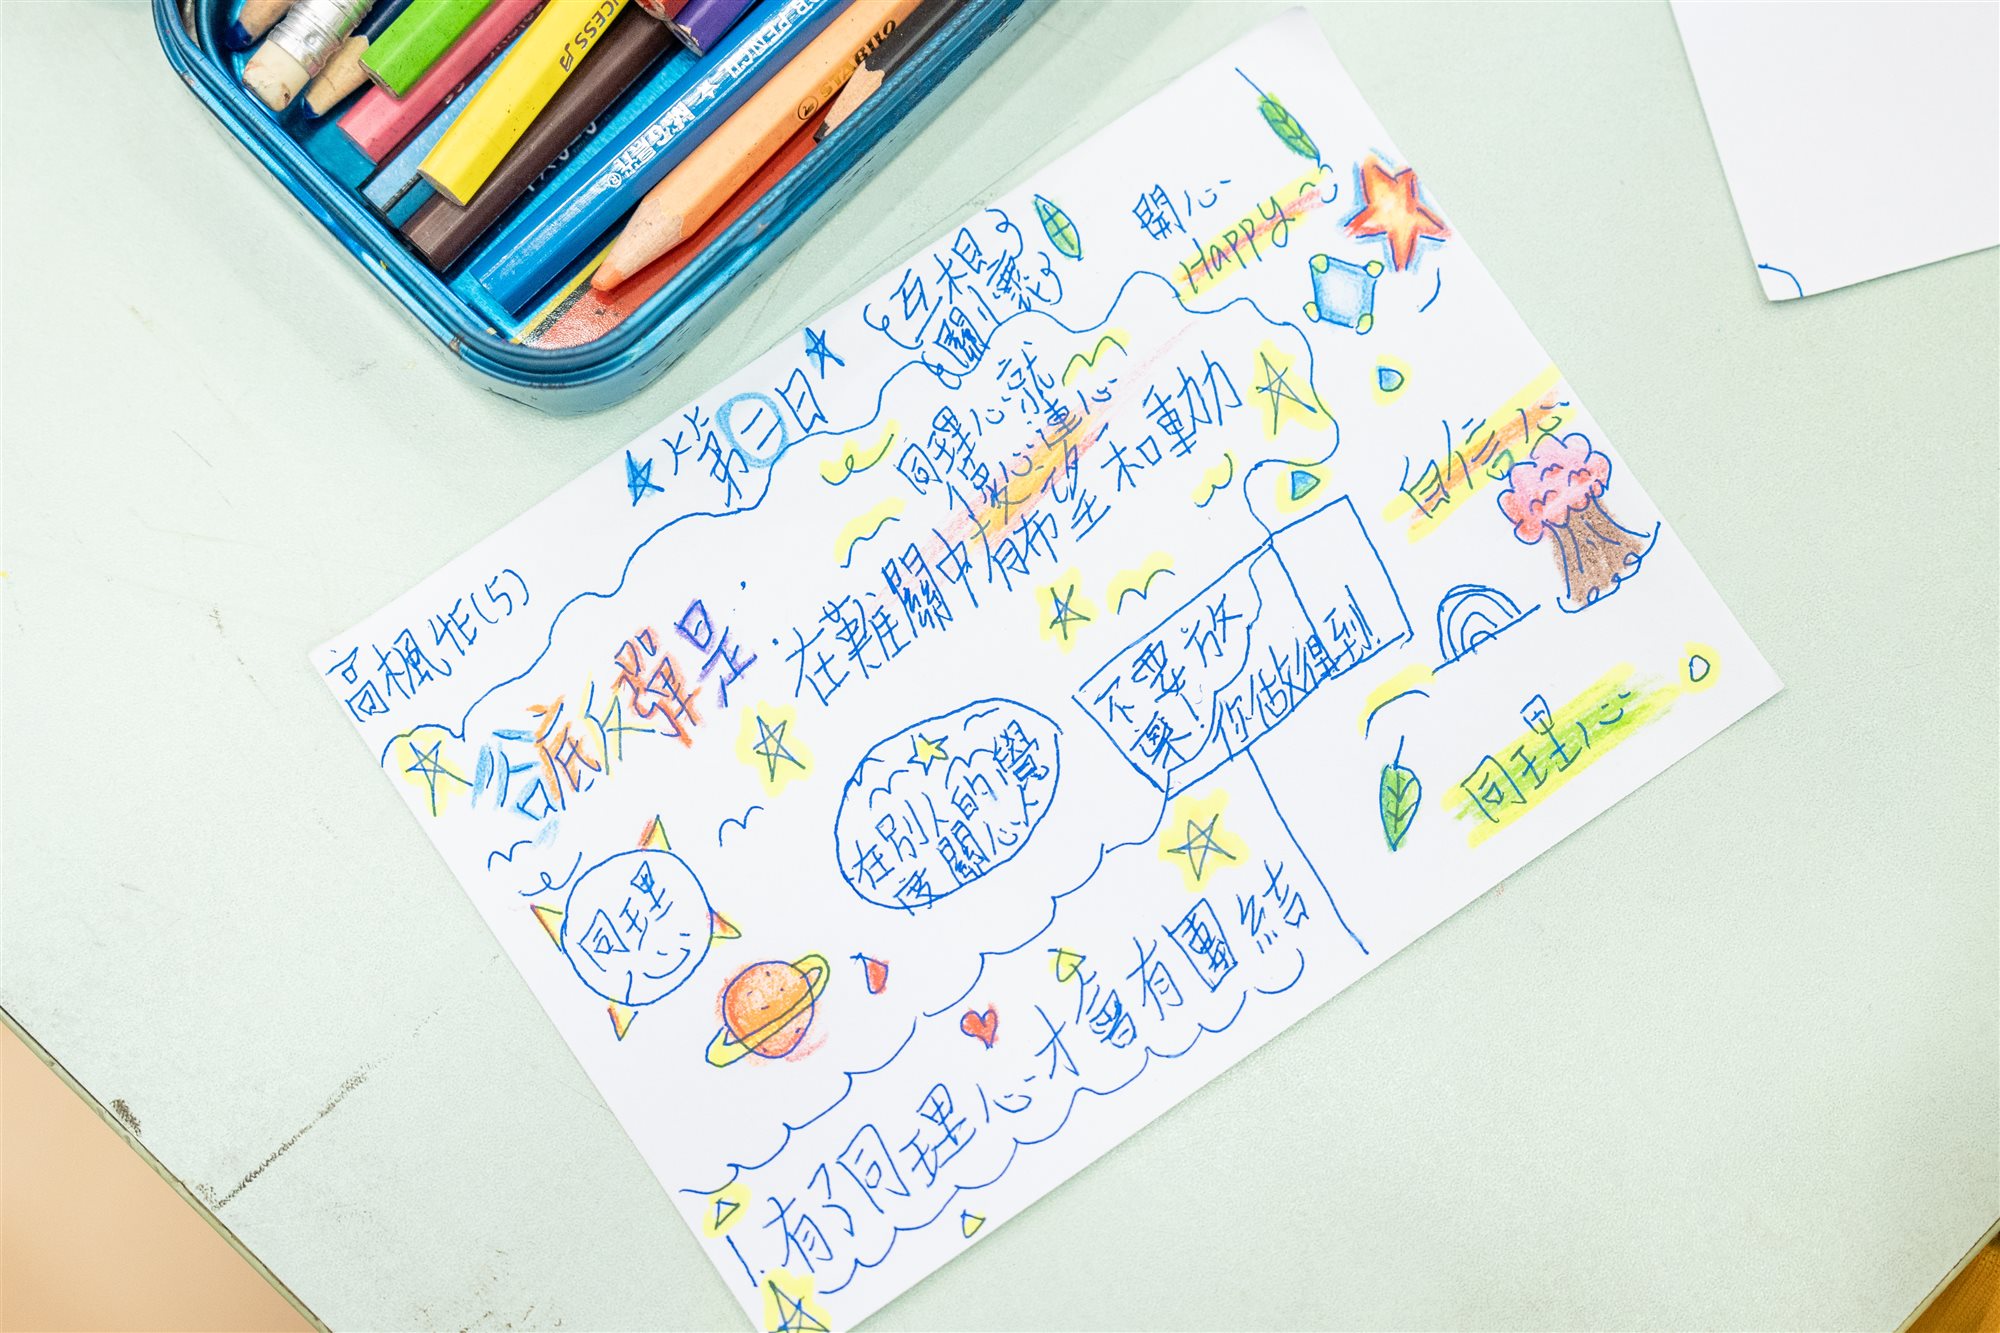 高楓怡(5)
第二日
互相
關懷
開心
Happy
同理心就
像心連心
自信心
谷底反彈是:
在難關中有希望和動力
不要放
棄!
你做得到!
在別人的
度關心人
同理心
同理心
1.有了同理心才會有團結
SUCCESS
COLOR-PENCIL
STABILO